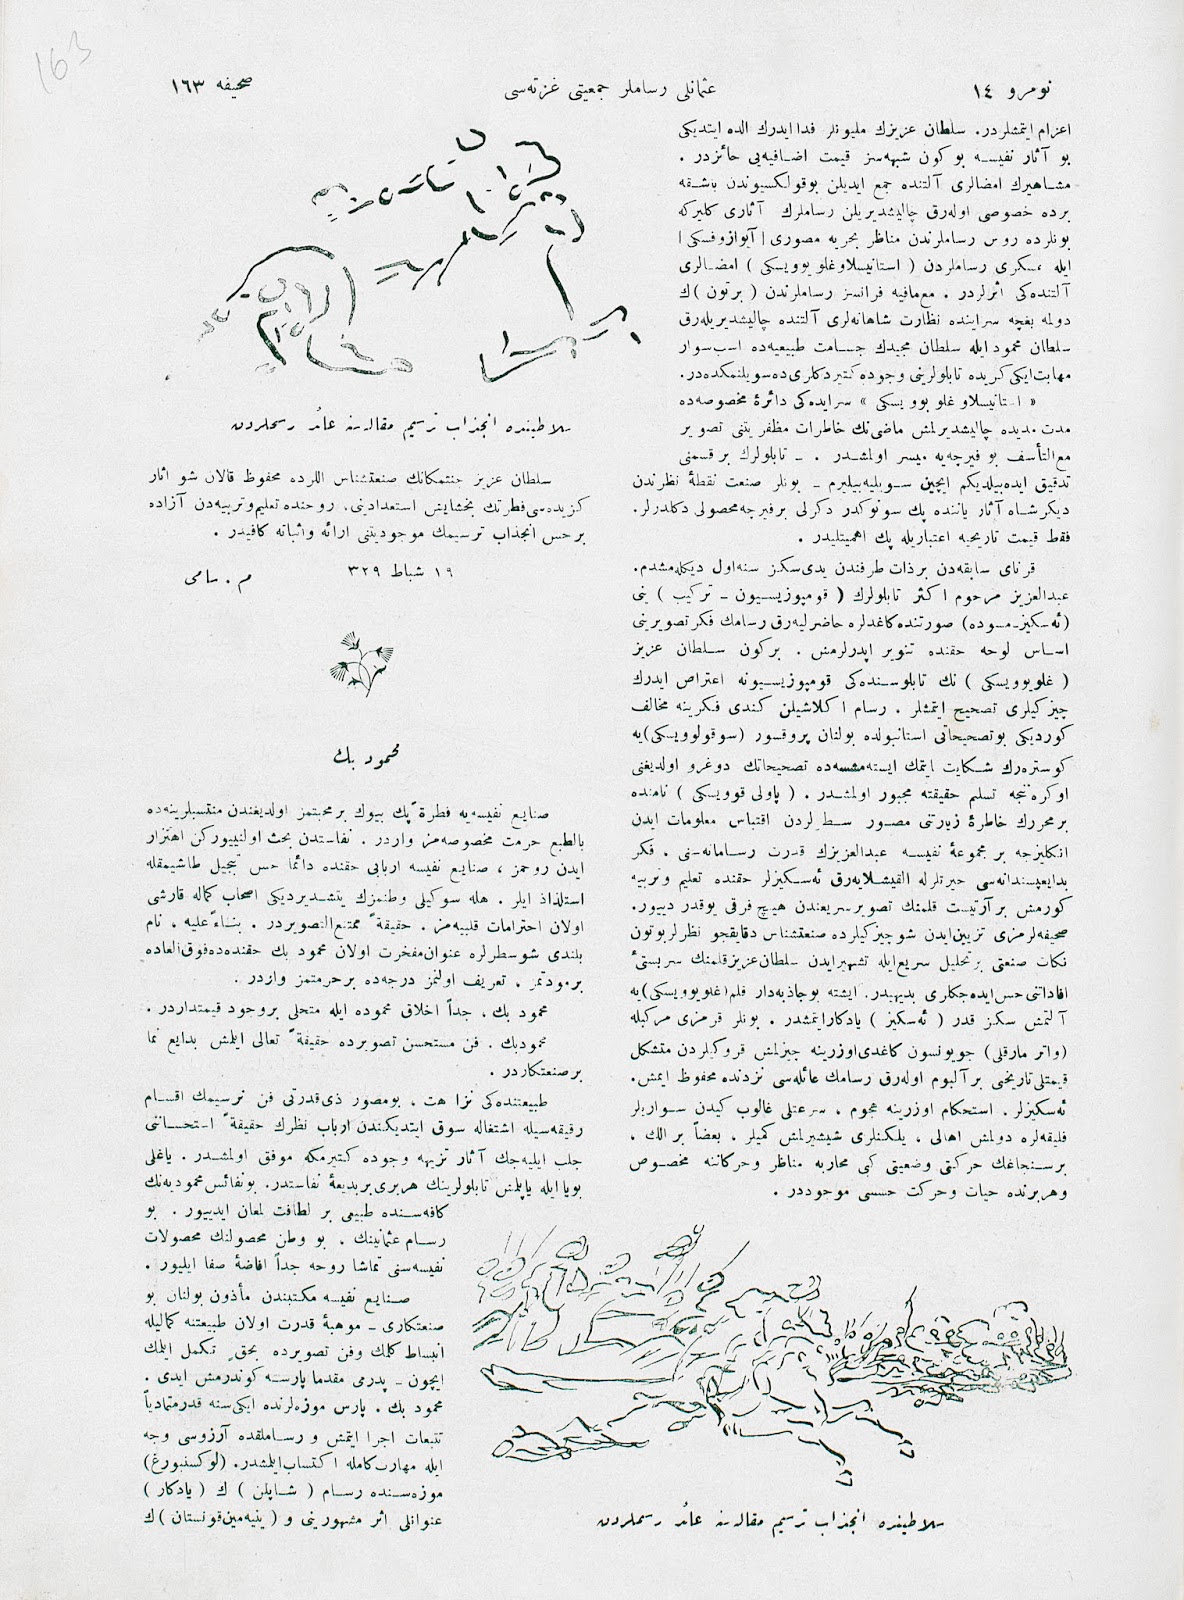 نومرو ١٤
عثمانلی رساملر جمعیتی غزته‌سی
صحیفه ١٦٣
163
اعزام ایتمشلردر. سلطان عزیزك ملیونلر فدا ایدرك الده ایتدیکی
بو آثار نفیسه بو کون شبهه‌سز قیمت اضافیه‌یی حائزدر .
مشاهیرك امضالری آلتنده جمع ایدیلن بو قولکسیوندن باشقه
برده خصوصی اوله‌رق چالیشدیریلن رساملرك آثاری کلیرکه
بونلرده روس رساملرندن مناظر بحریه مصوری | آیوازوفسکی |
ایله عسکری رساملردن ( استانیسلاو غلوبوویسکی ) امضالری
آلتنده‌کی اثرلردر . مع‌مافیه فرانسز رساملرندن ( برتون ) ك
دولمه بغچه سراینده نظارت شاهانه‌لری آلتنده چالیشدیریله‌رق
سلطان محمود ایله سلطان مجیدك جسامت طبیعیه‌ده اسب سوار
مهابت ایکی کزیده تابلولرینی وجوده کتیردکلری ده سویلنمکده‌در.
« استانیسلاو غلوبوویسکی » سرایده‌کی دائرهٔ مخصوصه‌ده
مدت مدیده چالیشدیرلمش ماضی‌نك خاطرات مظفریتنی تصویر
مع‌التأسف بو فیرچه‌یه میسر اولمشدر . ـ تابلولرك بر قسمنی
تدقیق ایده‌بیلدیکم ایچین سویلیه‌بیلیرم ـ بونلر صنعت نقطهٔ نظرندن
دیکر شاه آثار یاننده پك سونوکدر دکرلی بر فیرچه محصولی دکلدرلر.
فقط قیمت تاریخیه اعتباریله پك اهمیتلیدر .
قرنای سابقه‌دن بر ذات طرفندن یدی سکز سنه اول دیکله‌مشدم.
عبدالعزیز مرحوم اکثر تابلولرك ( قومپوزیسیون ـ ترکیب ) نی
(ئه‌سکیز ـ مسوده) صورتنده کاغدلره حاضرلیه‌رق رسامك فکر تصویرینی
اساس لوحه حقنده تنویر ایدرلرمش . بر کون سلطان عزیز
( غلوبوویسکی ) نك تابلوسنده‌کی قومپوزیسیونه اعتراض ایدرك
چیزکیلری تصحیح ایتمشلر . رسام اکلاشیلن کندی فکرینه مخالف
کوردیکی بو تصحیحاتی استانبولده بولنان پروفسور (سوقولوویسکی) یه
کوستره‌رك شکایت ایتمك ایسته‌مشسه‌ده تصحیحاتك دوغرو اولدیغنی
اوکرنجه تسلیم حقیقته مجبور اولمشدر . ( پاولی قوویسکی ) نامنده
بر محررك خاطرهٔ زیارتنی مصور سطرلردن اقتباس معلومات ایدن
انکلیزجه بر مجموعهٔ نفیسه عبدالعزیزك قدرت رسامانه‌سنی . فکر
بدایعپسندانه‌سی حیرتلرله القیشلایه‌رق ئه‌سکیزلر حقنده تعلیم و تربیه
کورمش بر آرتیست قلمنك تصویر سریعندن هیچ فرقی یوقدر دییور.
صحیفه‌لرمزی تزیین ایدن شو چیزکیلرده صنعتشناس دقایقجو نظرلر بوتون
نکات صنعتی بر تحلیل سریع ایله تشهیر ایدن سلطان عزیز قلمنك سربستیٔ
افاداتنی حس ایده‌جکلری بدیهیدر. ایشته بو جاذبه‌دار قلم (غلوبوویسکی) یه
آلتمش سکز قدر ( ئه‌سکیز ) یادکار ایتمشدر . بونلر قرمزی مرکبله
(واتر مارقلی) جویونسون کاغدی اوزرینه چیزلمش قروکیلردن متشکل
قیمتلی تاریخی بر آلبوم اوله‌رق رسامك عائله‌سی نزدنده محفوظ ایمش.
ئه‌سکیزلر . استحکام اوزرینه هجوم ، سرعتلی غالوب کیدن سواریلر
فلیقه‌لره دولمش اهالی ، یلکنلری شیشیرلمش کمیلر ، بعضاً بر الك ،
بر سنجاغك حرکتی وضعیتی کبی محاربه مناظر و حرکاتنه مخصوص
و هر برنده حیات و حرکت حسسی موجوددر .
سلاطینده انجذاب ترسیم مقاله‌سنه عائد رسملردن
سلطان عزیز جنتمکانك صنعتشناس اللرده محفوظ قالان شو اثار
کزیده‌سی فطرتك بخشایش استعدادینی، روحنده تعلیم و تربیه‌دن آزاده
بر حس انجذاب ترسیمك موجودیتنی ارائه و اثباته کافیدر .
١٩ شباط ٣٢٩
م . سامی
محمود بك
صنایع نفیسه‌یه فطرةً پك بیوك بر محبتمز اولدیغندن منتسبلرینه‌ده
بالطبع حرمت مخصوصه‌مز واردر . نفاستدن بحث اولنییورکن اهتزاز
ایدن روحمز ، صنایع نفیسه اربابی حقنده دائما حس تبجیل طاشیمقله
استلذاذ ایلر . هله سوکیلی وطنمزك یتشدیردیکی اصحاب کماله قارشی
اولان احترامات قلبیه‌مز . حقیقةً ممتنع‌التصویردر . بناءً علیه ، نام
بلندی شو سطرلره عنوان مفخرت اولان محمود بك حقنده‌ده فوق‌العاده
بر مودتمز ، تعریف اولنمز درجه‌ده بر حرمتمز واردر .
محمود بك ، جداً اخلاق محموده ایله متحلی بر وجود قیمتداردر .
محمودبك . فن مستحسن تصویرده حقیقةً تعالی ایلمش بدایع نما
بر صنعتکاردر .
طبیعتنده‌کی نزاهت ، بو مصور ذی‌قدرتی فن ترسیمك اقسام
رقیقه‌سیله اشتغاله سوق ایتدیکندن ارباب نظرك حقیقةً استحساننی
جلب ایلیه‌جك آثار نزیهه وجوده کتیرمکه موفق اولمشدر . یاغلی
بویا ایله یاپیلمش تابلولرینك هر بری بر بدیعهٔ نفاستدر. بو نفائس محمودیه‌نك
کافه‌سنده طبیعی بر لطافت لمعان ایدییور . بو
رسام عثمانینك . بو وطن محصولنك محصولات
نفیسه‌سنی تماشا روحه جداً افاضهٔ صفا ایلیور .
صنایع نفیسه مکتبندن مأذون بولنان بو
صنعتکاری ـ موهبهٔ قدرت اولان طبیعتنه کمالیله
انبساط کلمك و فن تصویرده بحق تکمل ایلمك
ایچون ـ پدرمی مقدما پارسه کوندرمش ایدی .
محمود بك . پارس موزه‌لرنده ایکی سنه قدر متمادیاً
تتبعات اجرا ایتمش و رساملقده آرزوسی وجه
ایله مهارت کامله اکتساب ایلمشدر. (لوکسنبورغ)
موزه‌سنده رسام ( شاپلن ) ك ( یادکار )
عنوانلی اثر مشهورینی و ( ینیه‌مین قونستان ) ك
سلاطینده انجذاب ترسیم مقاله‌سنه عائد رسملردن